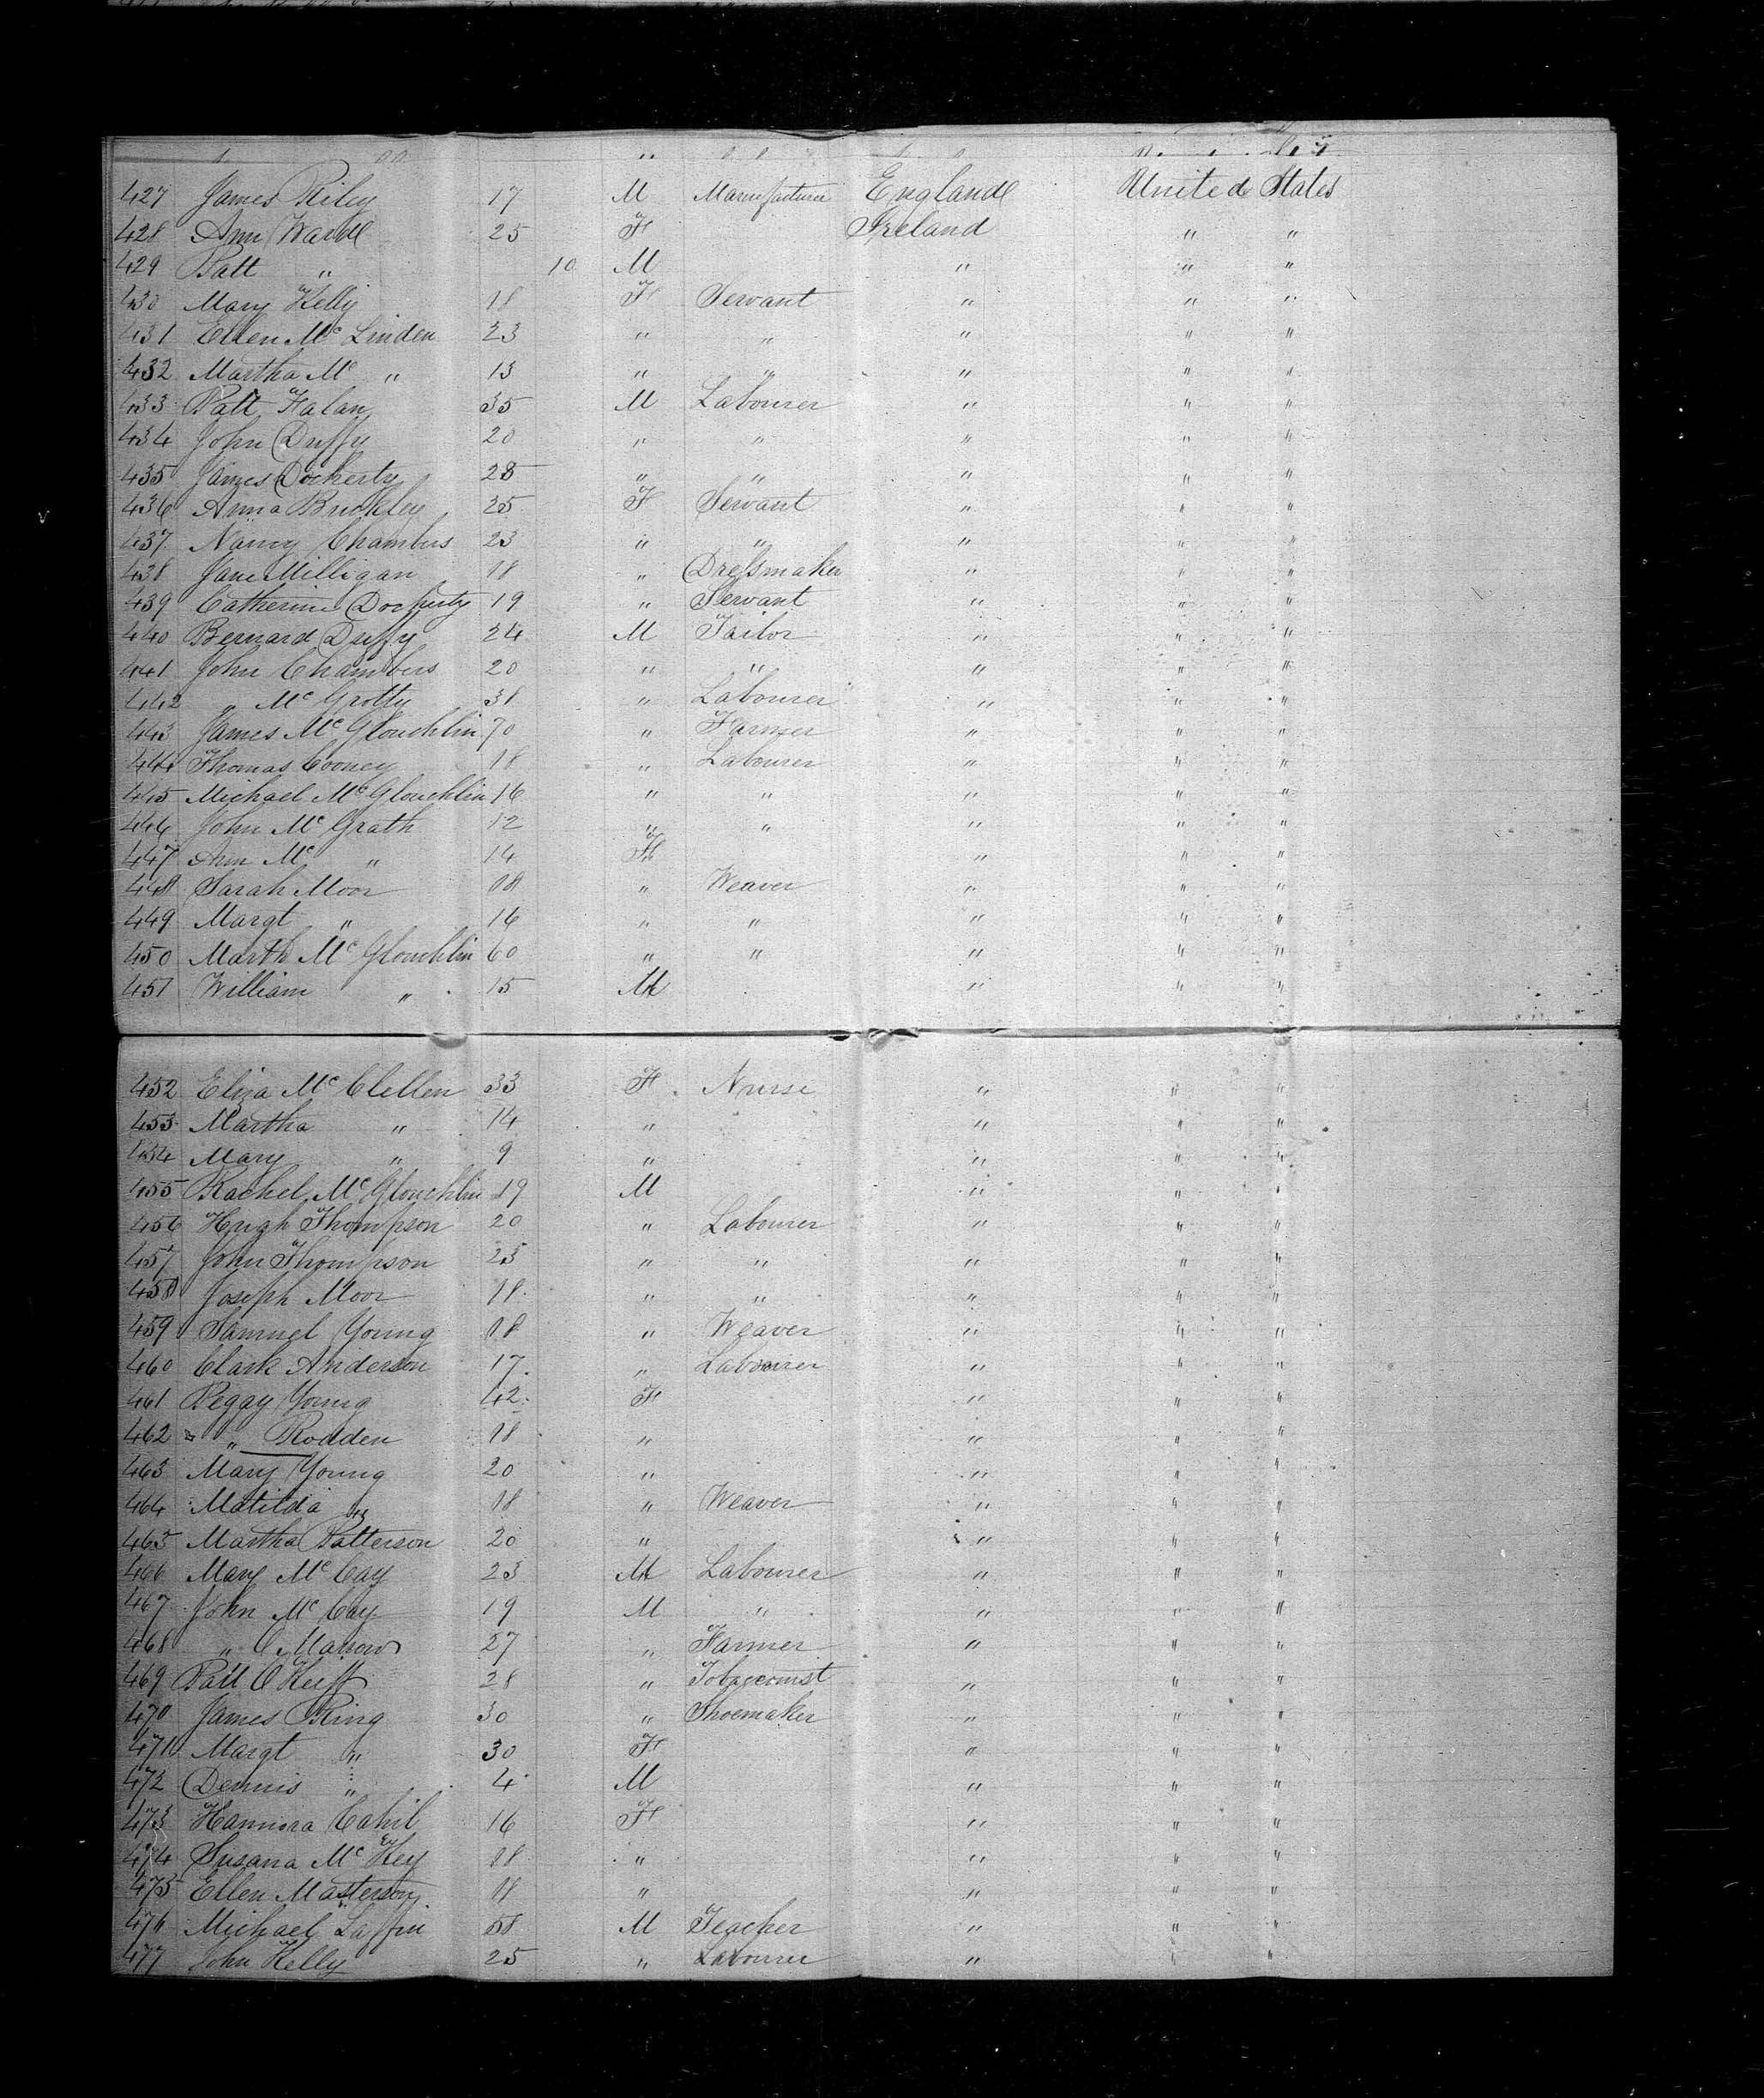 427 James Riley 17 M Manufacturer England United States
428 Ann Ward 25 F Ireland " "
429 Patt " 10 M " " "
430 Mary Kelly 18 F Servant " " "
431 Ellen Mc Linden 23 " " " " "
432 Martha Mc " 13 " " " " "
433 Patt Falan 35 M Labourer " " "
434 John Duffy 20 " " " " "
435 James Docherty 28 " " " " "
436 Anna Buckley 25 F Servant " " "
437 Nancy Chambers 23 " " " " "
438 Jane Milligan 18 " Dressmaker " " "
439 Catherine Docherty 19 " Servant " " "
440 Bernard Duffy 24 M Tailor " " "
441 John Chambers 20 " " " " "
442 " Mc Grotty 31 " Labourer " " "
443 James Mc Glouchlin 70 " Farmer " " "
444 Thomas Cooney 18 " Labourer " " "
445 Michael Mc Glouchlin 16 " " " " "
446 John Mc Grath 12 " " " " "
447 Ann Mc " 14 F " " "
448 Sarah Moor 18 " Weaver " " "
449 Margt " 16 " " " " "
450 Marth Mc Glouchlin 60 " " " " "
451 William " 15 M " " "
452 Eliza Mc Clellen 33 F Nurse " " "
453 Martha " 14 " " " "
454 Mary " 9 " " " "
455 Rachel Mc Glouchlin 19 M " " "
456 Hugh Thompson 20 " Labourer " " "
457 John Thompson 23 " " " " "
458 Joseph Moor 18 " " " " "
459 Samuel Young 18 " Weaver " " "
460 Clark Anderson 17 " Labourer " " "
461 Peggy Young 42 F " " "
462 " Rodden 18 " " " "
463 Mary Young 20 " " " "
464 Matilda " 18 " Weaver " " "
465 Martha Patterson 20 " " " "
466 Mary Mc Cay 23 M Labourer " " "
467 John Mc Cay 19 M " " " "
468 " 27 " Farmer " " "
469 Patt O Keeff 28 " Tobacconist " " "
470 James Ring 30 " Shoemaker " " "
471 Margt " 30 F " " "
472 Dennis " 4 M " " "
473 Hannora Cahil 16 F " " "
474 Susana Mc Key 18 " " " "
475 Ellen Masterson 18 " " " "
476 Michael Laffin 58 M Teacher " " "
477 John Kelly 25 " Labourer " " "